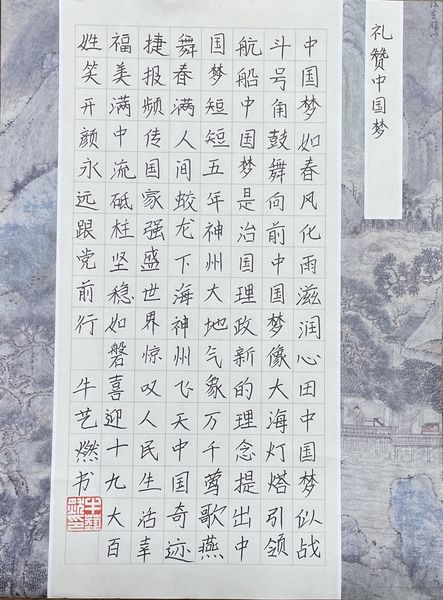 礼赞中国梦
中国梦如春风化雨滋润心田中国梦似战
斗号角鼓舞向前中国梦像大海灯塔引领
航船中国梦是治国理政新的理念提出中
国梦短短五年神州大地气象万千莺歌燕
舞春满人间蛟龙下海神州飞天中国奇迹
捷报频传国家强盛世界惊叹人民生活幸
福美满中流砥柱坚稳如磐喜迎十九大百
姓笑开颜永远跟党前行 牛艺燃书